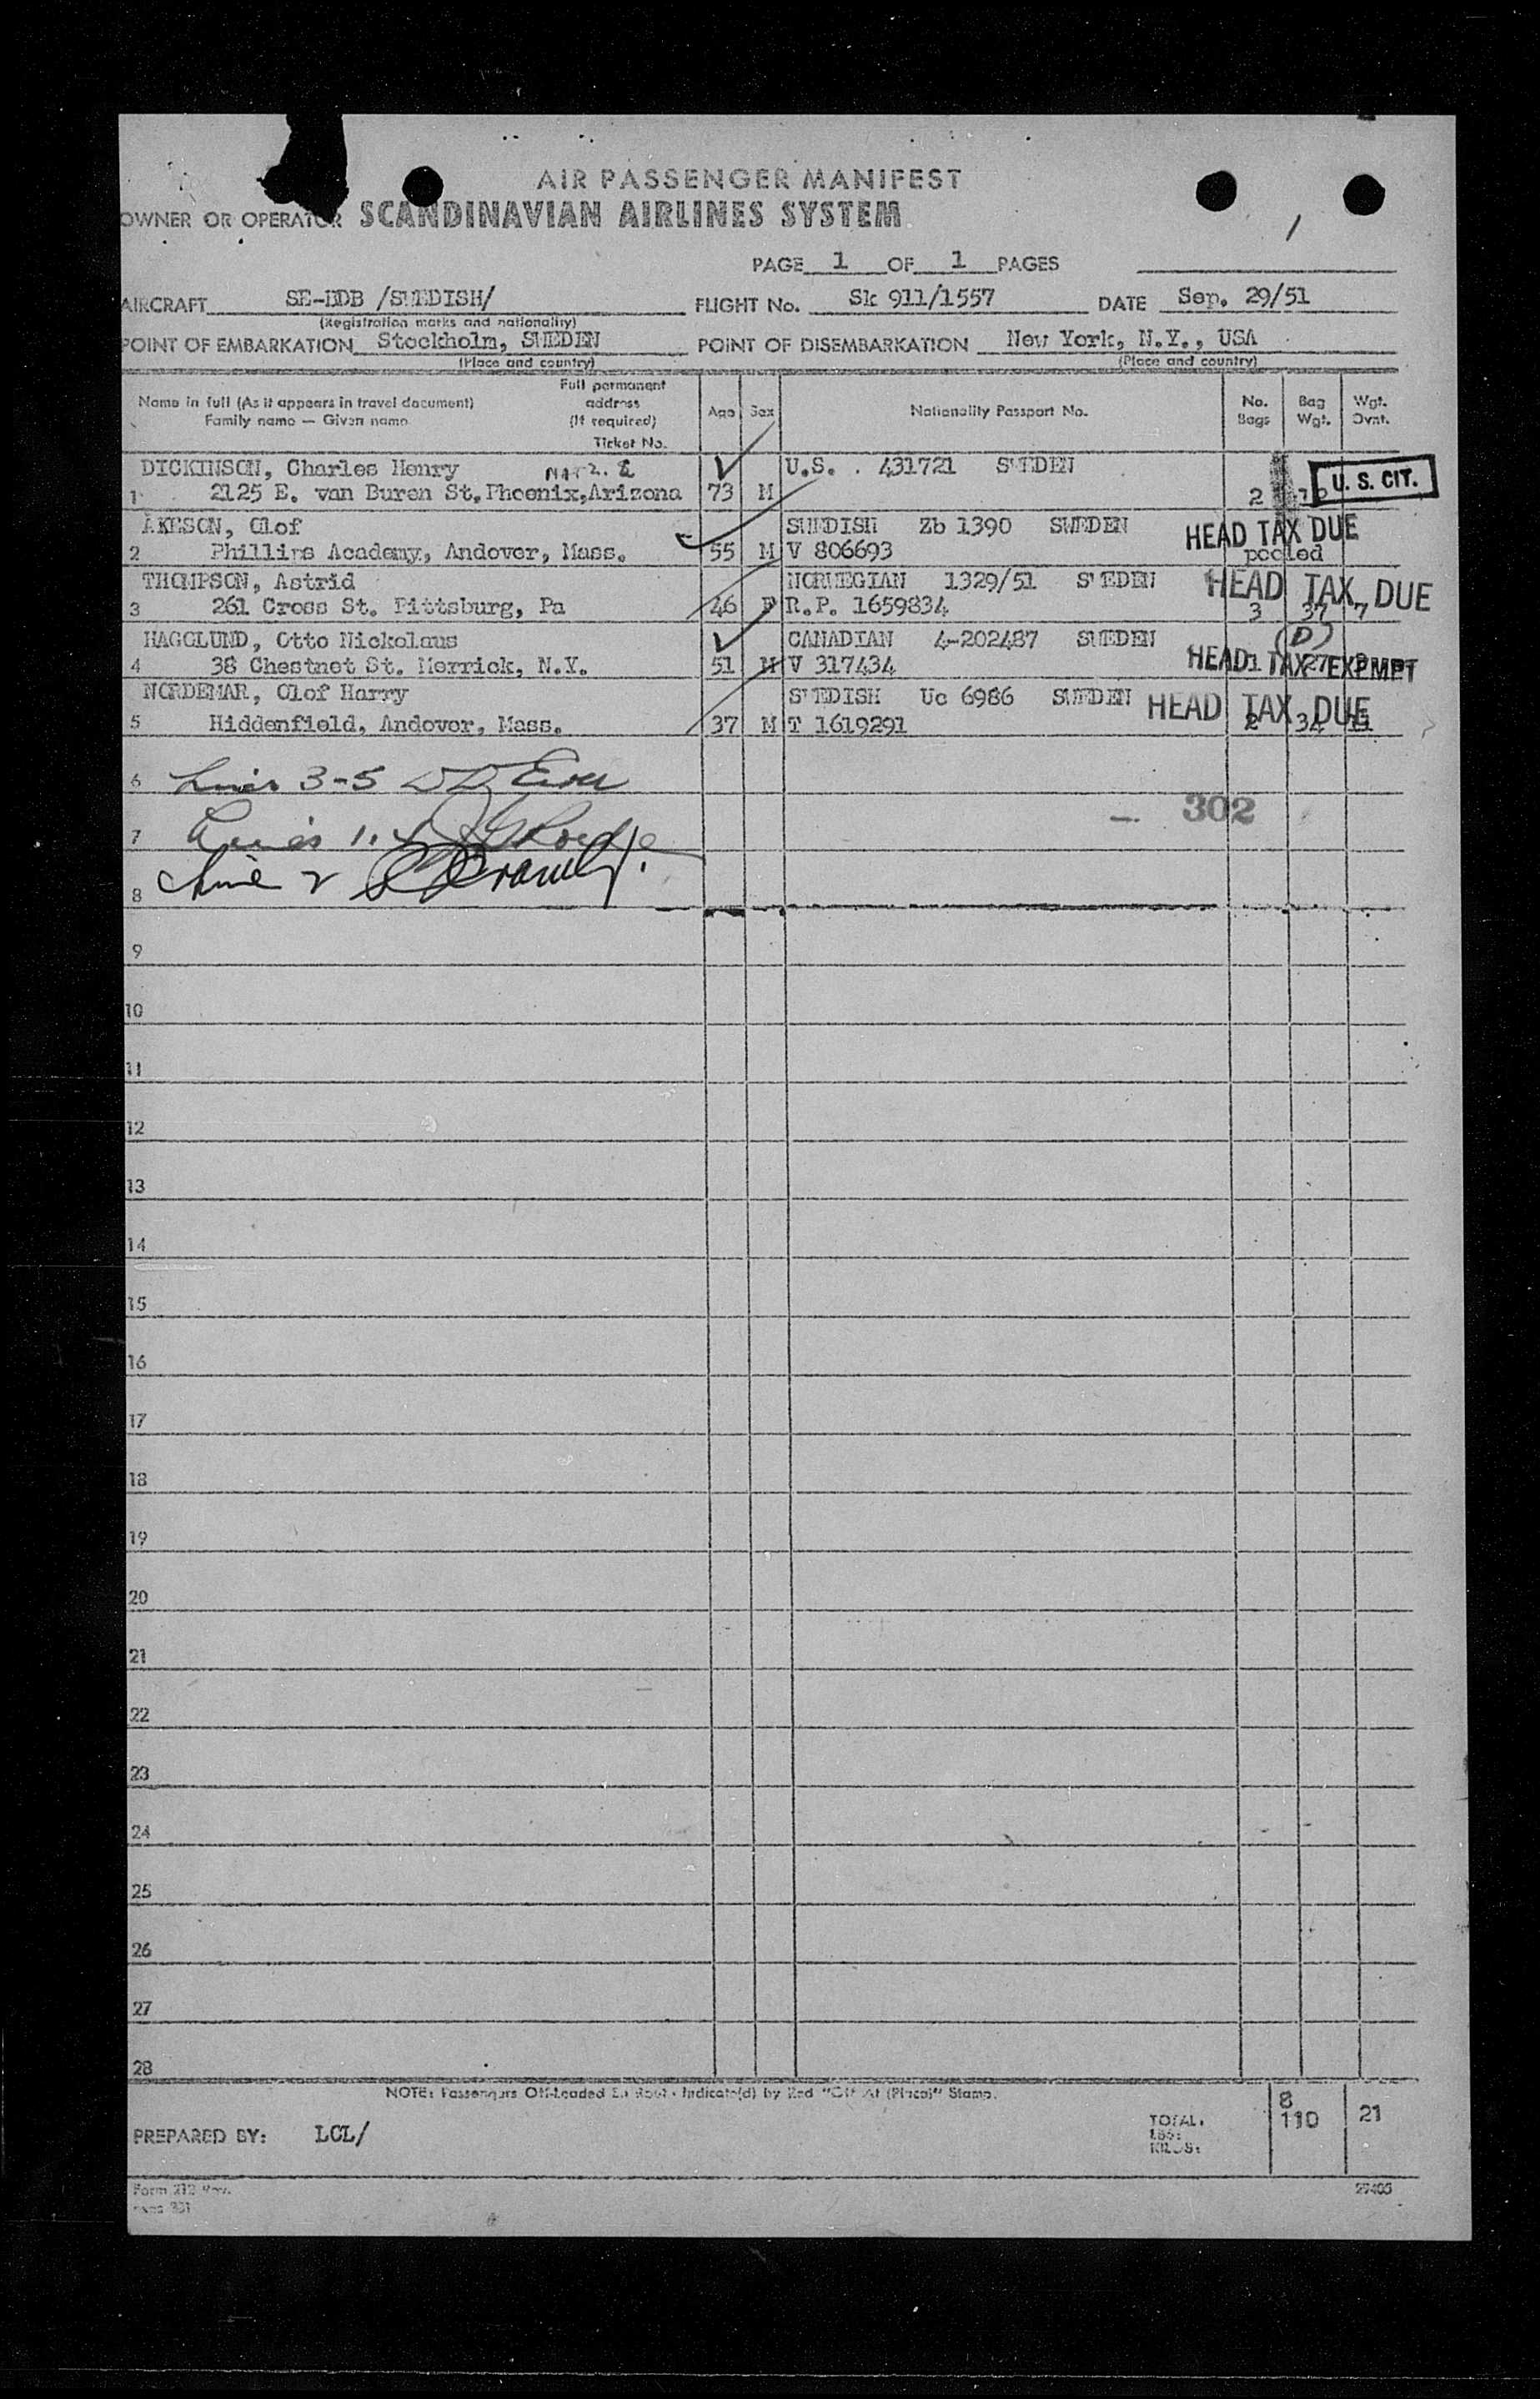 AIR PASSENGER MANIFEST
OWNER OR OPERATOR SCANDINAVIAN AIRLINES SYSTEM
PAGE 1 OF 1 PAGES
AIRCRAFT SE-BDB /SWEDISH/ FLIGHT No. Sk 911/1557 DATE Sep. 29/51
(Registration marks and nationality)
POINT OF EMBARKATION Stockholm, SWEDEN POINT OF DISEMBARKATION New York, N.Y., USA
(Place and country) (Place and country)
Name in full (As it appears in travel document) Full permanent address (If required) Age Sex Nationality Passport No. No. Bags Bag Wgt. Wgt. Ovnt.
Family name — Given name Ticket No.
DICKINSON, Charles Henry U.S. . 431721 SWEDEN
1 2125 E. van Buren St. Phoenix, Arizona 73 M 2 U. S. CIT.
AKESON, Olof SWEDISH Zb 1390 SWEDEN HEAD TAX DUE
2 Phillips Academy, Andover, Mass. 55 M V 806693 pooled
THOMPSON, Astrid NORWEGIAN 1329/51 SWEDEN HEAD TAX DUE
3 261 Cross St. Pittsburg, Pa 46 F R.P. 1659834 3 37 7
HAGGLUND, Otto Nickolaus CANADIAN 4-202487 SWEDEN (D)
4 38 Chestnet St. Merrick, N.Y. 51 M V 317434 1 27 HEAD TAX EXEMPT
NORDEMAR, Olof Harry SWEDISH Uc 6986 SWEDEN HEAD TAX DUE
5 Hiddenfield, Andover, Mass. 37 M T 1619291 2 34
6 Lines 3-5
302
7 Lines 1.4
8 Line 2
9
10
11
12
13
14
15
16
17
18
19
20
21
22
23
24
25
26
27
28
NOTE: Passengers Off-Loaded En Route Indicate(d) by Red "Off At (Place)" Stamp.
8
TOTAL: 110 21
LBS:
PREPARED BY: LCL/ KILOS:
Form 212 Rev. 27405